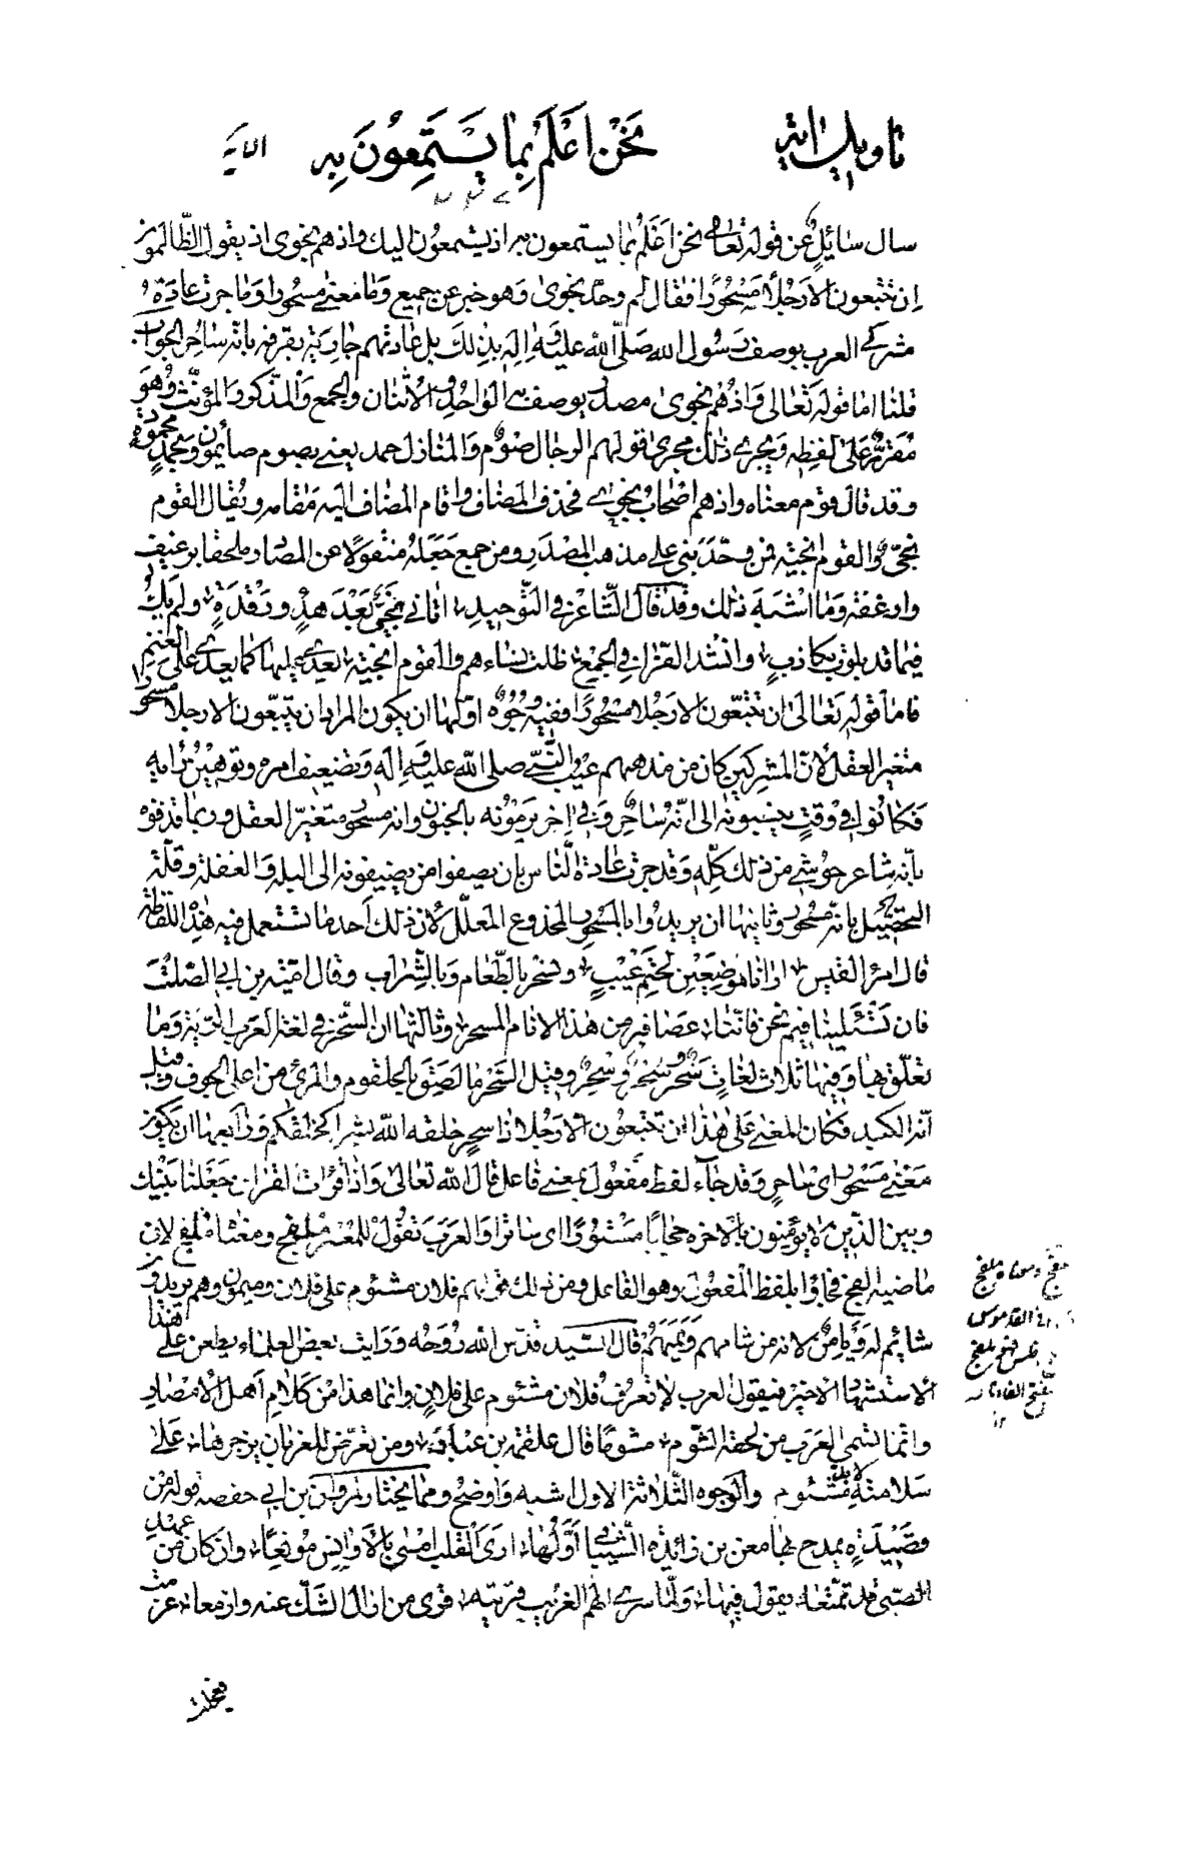 تاويل اية نَحْنُ اَعْلَمُ بِمَا يَسْتَمِعُونَ بِهِ الاية
سال سائل عن قوله تعالى نحن اَعْلَمُ بما يستمعون به اذ يستمعون اليك واذ هم نجوى اذ يقول الظالمون
اِن تتبعون الا رَجُلًا مَسْحُورًا فقال لم وحّد نجوى وَهو خبر عن جميع وَما معنى مسحورا وَما جرت عادة
مشركى العرب بوصف رسول الله صَلّى الله عليه وَاله بذلك بل عادتهم جارية بقرفه بانه ساحر الجواب
قلنا اما قوله تعالى وَاذ هُم نجوى مصدر يوصف به الواحد والاثنان والجمع وَالمذكر وَالمؤنث وهو
مُقرّ على لفظه ويجرى ذلك مجرى قولهم الرجال صَوم وَالمنازل حمد يعنى بصوم صائمون وبحمد محمودة
وقد قال قوم معناه واذ هم اصْحاب نجوى فحذف المضاف واقام المضاف اليه مَقامه ويُقال القوم
نجىّ والقوم انجية فمن وحّد بنى على مذهب المصْدَر ومن جمع جَعَلَهُ منقولًا عن المصادر ملحقا برغيف
وارغفة وَما اشْبَهَ ذلك وقد قال الشاعر فى التَّوحيد اتانى نَجىّ بَعْدَ هدْءٍ وَرَقْدَةٍ ولم يَكُ
فيما قد بلوت بكاذبٍ وانشد الفرّاء فى الجمع ظلت نساءهم والقوم انجية يعدى عليها كما يعدى على الغنم
فاما قوله تعالى ان تتبعون الا رَجلا مسْحورًا ففيه وُجُوه اوّلها ان يكون المراد ان تتبعون الا رجلا مسحورا
متغيّر العقل لانّ المشركين كان من مذهبهم عيب النَّبى صلى الله عليه وَاله وَتضعيف امره وتوهين رأيه
فكانُوا فى وَقتٍ ينسبونه الى انّه سَاحر وَفى اخر يَرْمُونه بالجنون وانه مسحور متغيّر العقل وربما قذفوه
بانّه شاعر حوشى من ذلك كلّه وَقد جرت عادة النّاس بان يصفوا من يضيفونه الى البله وَالغفلة وقلّة
التحصيل بانّه مسحور وثانيها ان يريدُوا بالمسْحور المخدوع المعلّل لان ذلك اَحد ما تستعمل فيه هذه اللفظة
قال امرؤ القيس ارانا موضِعَيْن لحتم غيبٍ ونسحر بالطعام وَبالشّراب وقال امية بن ابى الصّلت
فان تَسْئَلينا فيم نحن فانّنا عصَافير من هذا الانام المسحر وثالثها ان السّحر فى لغة العرب الرّية وَما
تعلّق بها وَفيها ثلاث لغاتٍ سَحْر وسَحَر وسُحر وقيل السَّحر ما لصق بالحلقوم والمرئ من اعلى الجوف وقيل
انّه الكبد فكان المعنى عَلى هٰذا ان تتبعُون الا رَجُلا ذا سحر خلقه الله بشرا كخلقكم وَرابعها ان يكون
مَعْنى مَسْحور اى ساحر وَقد جاء لفظ مفعُول بمعنى فاعل قال الله تعالى وَاذا قرأت القراٰن جَعَلنا بَيْنك
وبين الذين لا يؤمنون بالاخرة حجابًا مَسْتورًا اى ساترا وَالعرَب تقُول للمُعسر مُلفَج ومعناه مُلفِج لان
ماضيه الفج فجاؤا بلفظ المفعُول وهو الفاعل ومن ذلك قولهم فلان مشئوم على فلان وميمون وهم يريدون
شائم له وَيامِنٌ لانه من شامهم وَيَمَنَهُم قال السّيد قدّس الله رُوحه وَرَايت بعض العلماء يطعن على هذا
الاستشهاد الاخير فيقول العرب لا تعرف فلان مشئوم على فلان وانما هذا من كلام اَهل الامصَار
وانما تسَمى العَرب من لحقه الشوم مشومًا قال علقمة بن عَبَدة ومن تعرّض للغربان يزجرها على
سَلامته لا بدّ مشئوم والوجوه الثلاثة الاول اشبه وَاوضح وممّا يختار لمروان بن ابى حفصة قوله من
قصيدةٍ يمدح بها معن بن زائدة الشّيبانى اَوّلُها ارى القلب امسى بالاَوانس مُولعًا وان كان من عهد
الصّبى قد تمتّعا يقول فيها وَلما سرى الهم الغريب قريته قرى من ازال الشك عنه وازمعا عزمت
فعجلت